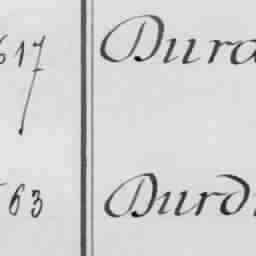 617 Dura
63 Durd